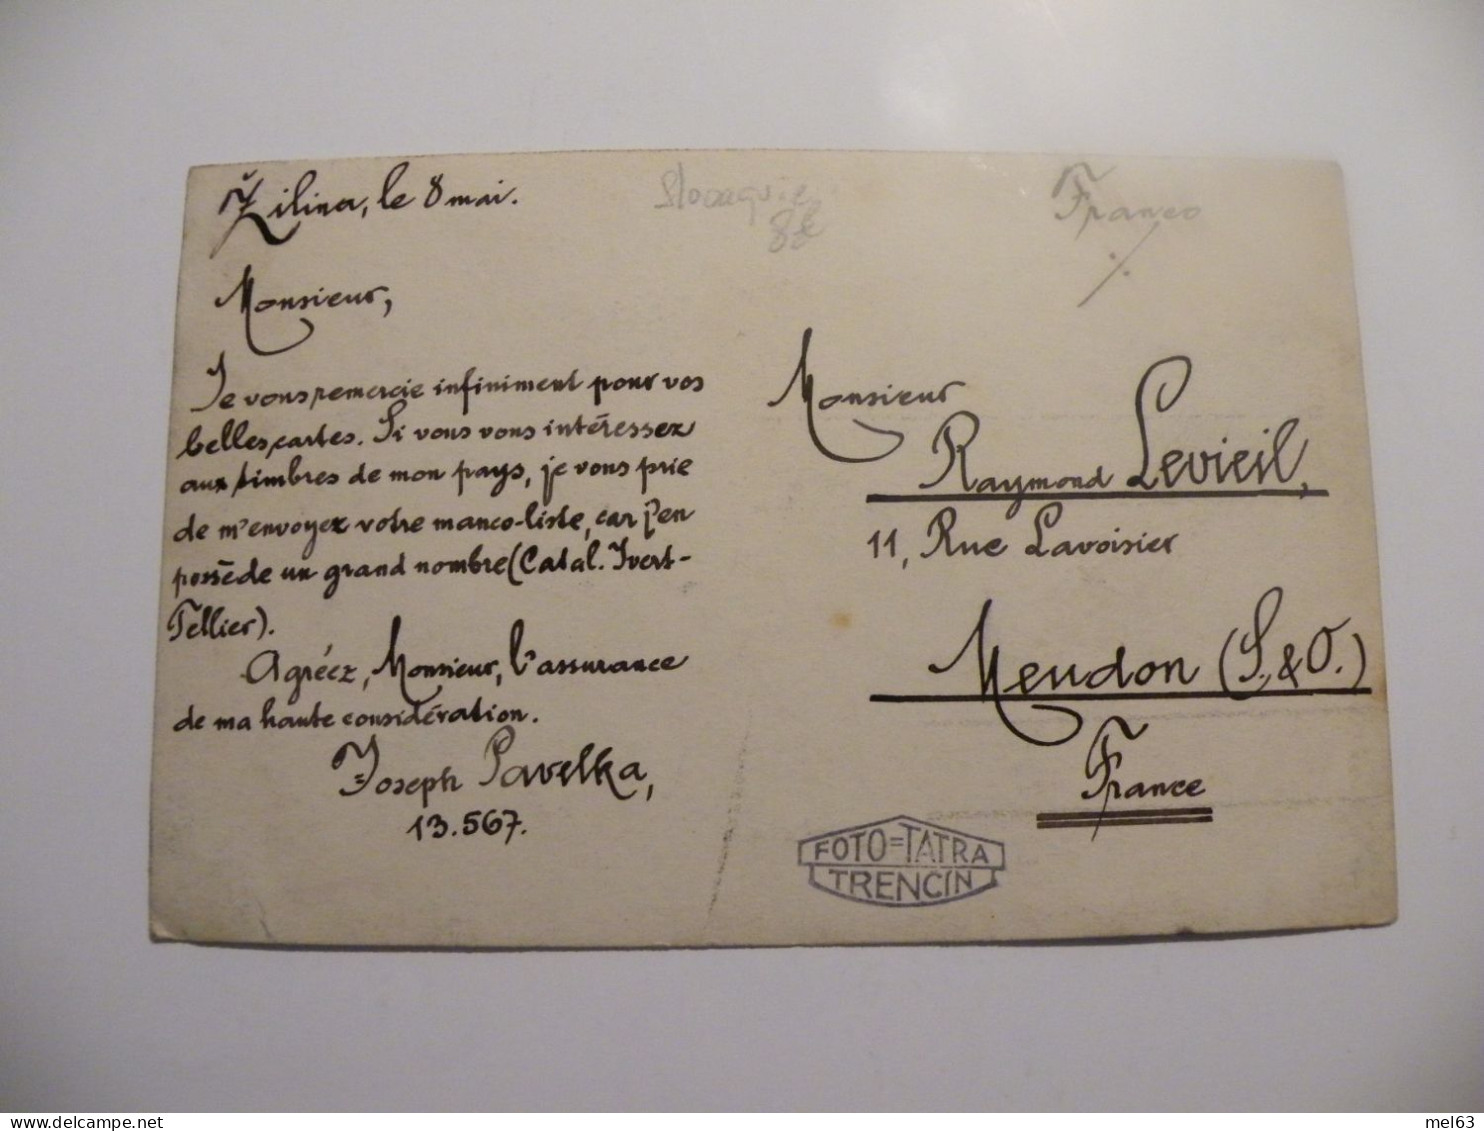 Žilina, le 8 mai.
Monsieur,
Je vous remercie infiniment pour vos
belles cartes. Si vous vous intéressez
aux timbres de mon pays, je vous prie
de m'envoyez votre manco-liste, car j'en
possède un grand nombre (Catal. Yvert-
Tellier).
Agréez, Monsieur, l'assurance
de ma haute considération.
Joseph Pavelka,
13.567.
Slovaquie
Franco
Monsieur
Raymond Levieil,
11, Rue Lavoisier
Meudon (S. & O.)
France
FOTO=TATRA
TRENCIN
mel63